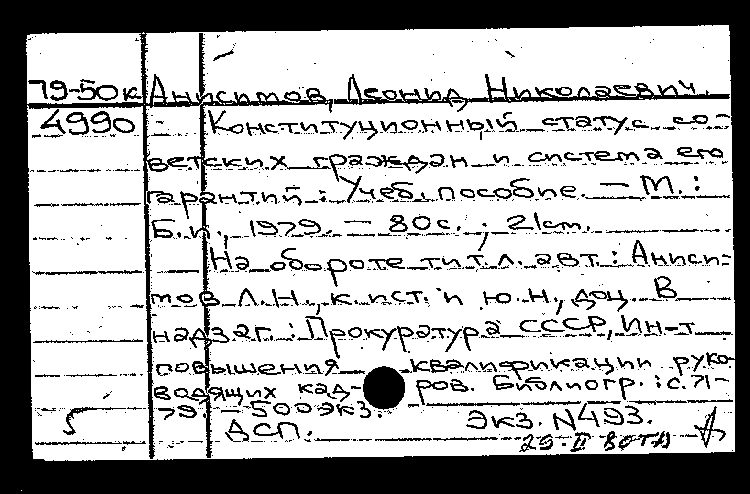 79-50к Анисимов, Леонид Николаевич.
4990 - Конституционный статус со-
ветских граждан и система его
гарантий : Учеб. пособие. — М. :
Б.и., 1979. — 80 с. ; 21 см.
На обороте тит. л. авт. : Аниси-
мов Л.Н., к. ист. и ю. н., доц. В
надзаг. : Прокуратура СССР, Ин-т
повышения квалификации руко-
водящих кад- ров. Библиогр. : с. 71-
79. — 500 экз.
ДСП. Экз. N 493.
29.II